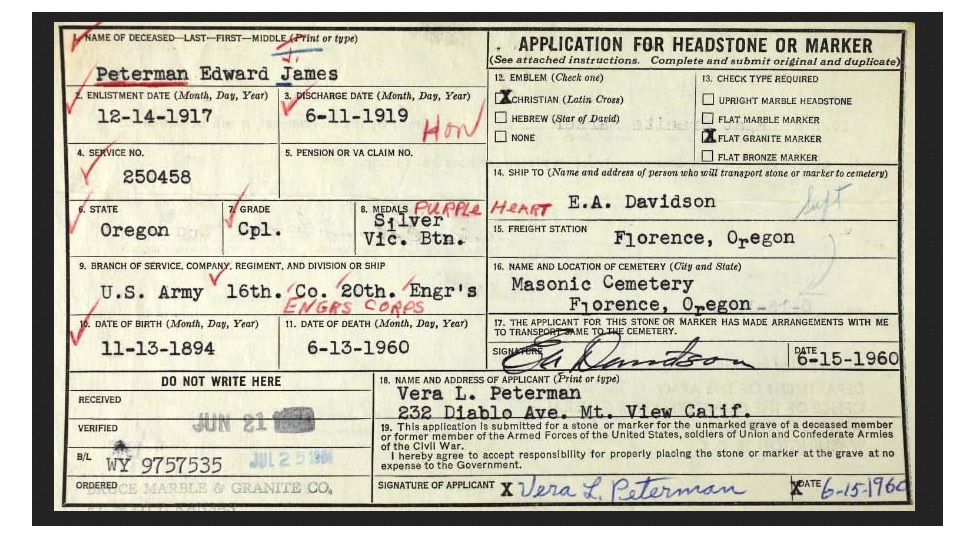 1. NAME OF DECEASED—LAST—FIRST—MIDDLE (Print or type)
J.
Peterman Edward James
2. ENLISTMENT DATE (Month, Day, Year)
12-14-1917
3. DISCHARGE DATE (Month, Day, Year)
6-11-1919
Hon
4. SERVICE NO.
250458
5. PENSION OR VA CLAIM NO.
6. STATE
Oregon
7. GRADE
Cpl.
8. MEDALS PURPLE HEART
Silver
Vic. Btn.
9. BRANCH OF SERVICE, COMPANY, REGIMENT, AND DIVISION OR SHIP
U.S. Army 16th. Co. 20th. Engr's
ENGRS CORPS
10. DATE OF BIRTH (Month, Day, Year)
11-13-1894
11. DATE OF DEATH (Month, Day, Year)
6-13-1960
APPLICATION FOR HEADSTONE OR MARKER
(See attached instructions. Complete and submit original and duplicate)
12. EMBLEM (Check one)
X CHRISTIAN (Latin Cross)
HEBREW (Star of David)
NONE
13. CHECK TYPE REQUIRED
UPRIGHT MARBLE HEADSTONE
FLAT MARBLE MARKER
X FLAT GRANITE MARKER
FLAT BRONZE MARKER
14. SHIP TO (Name and address of person who will transport stone or marker to cemetery)
E.A. Davidson
15. FREIGHT STATION
Florence, Oregon
16. NAME AND LOCATION OF CEMETERY (City and State)
Masonic Cemetery
Florence, Oregon
17. THE APPLICANT FOR THIS STONE OR MARKER HAS MADE ARRANGEMENTS WITH ME
TO TRANSPORT SAME TO THE CEMETERY.
SIGNATURE Ea Davidson
DATE
6-15-1960
DO NOT WRITE HERE
RECEIVED
JUN 21
VERIFIED
B/L
WY 9757535
JUL 25
ORDERED
BRUCE MARBLE & GRANITE CO.
18. NAME AND ADDRESS OF APPLICANT (Print or type)
Vera L. Peterman
232 Diablo Ave. Mt. View Calif.
19. This application is submitted for a stone or marker for the unmarked grave of a deceased member
or former member of the Armed Forces of the United States, soldiers of Union and Confederate Armies
of the Civil War.
I hereby agree to accept responsibility for properly placing the stone or marker at the grave at no
expense to the Government.
SIGNATURE OF APPLICANT X Vera L. Peterman
X DATE 6-15-1960